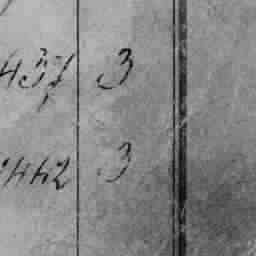 437 3
2442 3